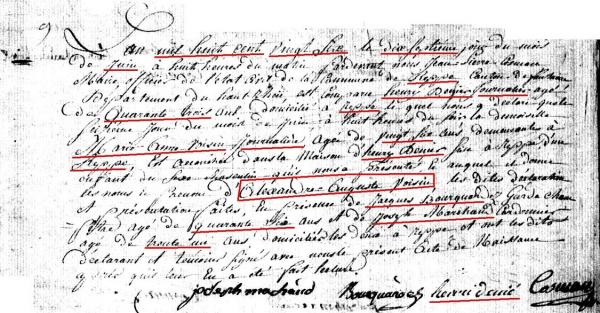 9
L'an mil huit cent vingt six le dix septieme jour du mois
de Juin à huit heures du matin Pardevant nous Jean Pierre
Maire officier de l'Etat Civil de la Commune de Reppe Canton de fontaine
Departement du haut Rhin, est comparu henry Denis Journalier agé
de Quarante trois ans domicilié à Reppe lequel nous a déclaré que le
jour du mois de Juin à huit heures du soir la demoiselle
Marie Anne Voisin Journaliere Agée de vingt six ans demeurante à
Reppe est accouchée dans la Maison d'henry Denis sise à Reppe d'un
enfant du Sexe Masculin qu'il nous a présenté et auquel il donne
les noms et Prenoms d'Alexandre Auguste Voisin les dites declaration
et présentation faites, en présence de Jacques Bourquardez Garde Cham
pêtre agé de quarante six ans et de Joseph Marchand Cordonnier
agé de trente un ans, domiciliés les deux à Reppe et ont les dits
déclarant et temoins signé avec nous le présent Acte de Naissance
après qu'il leur en a été fait lecture.
joseph marchand Bourquardez henri denis